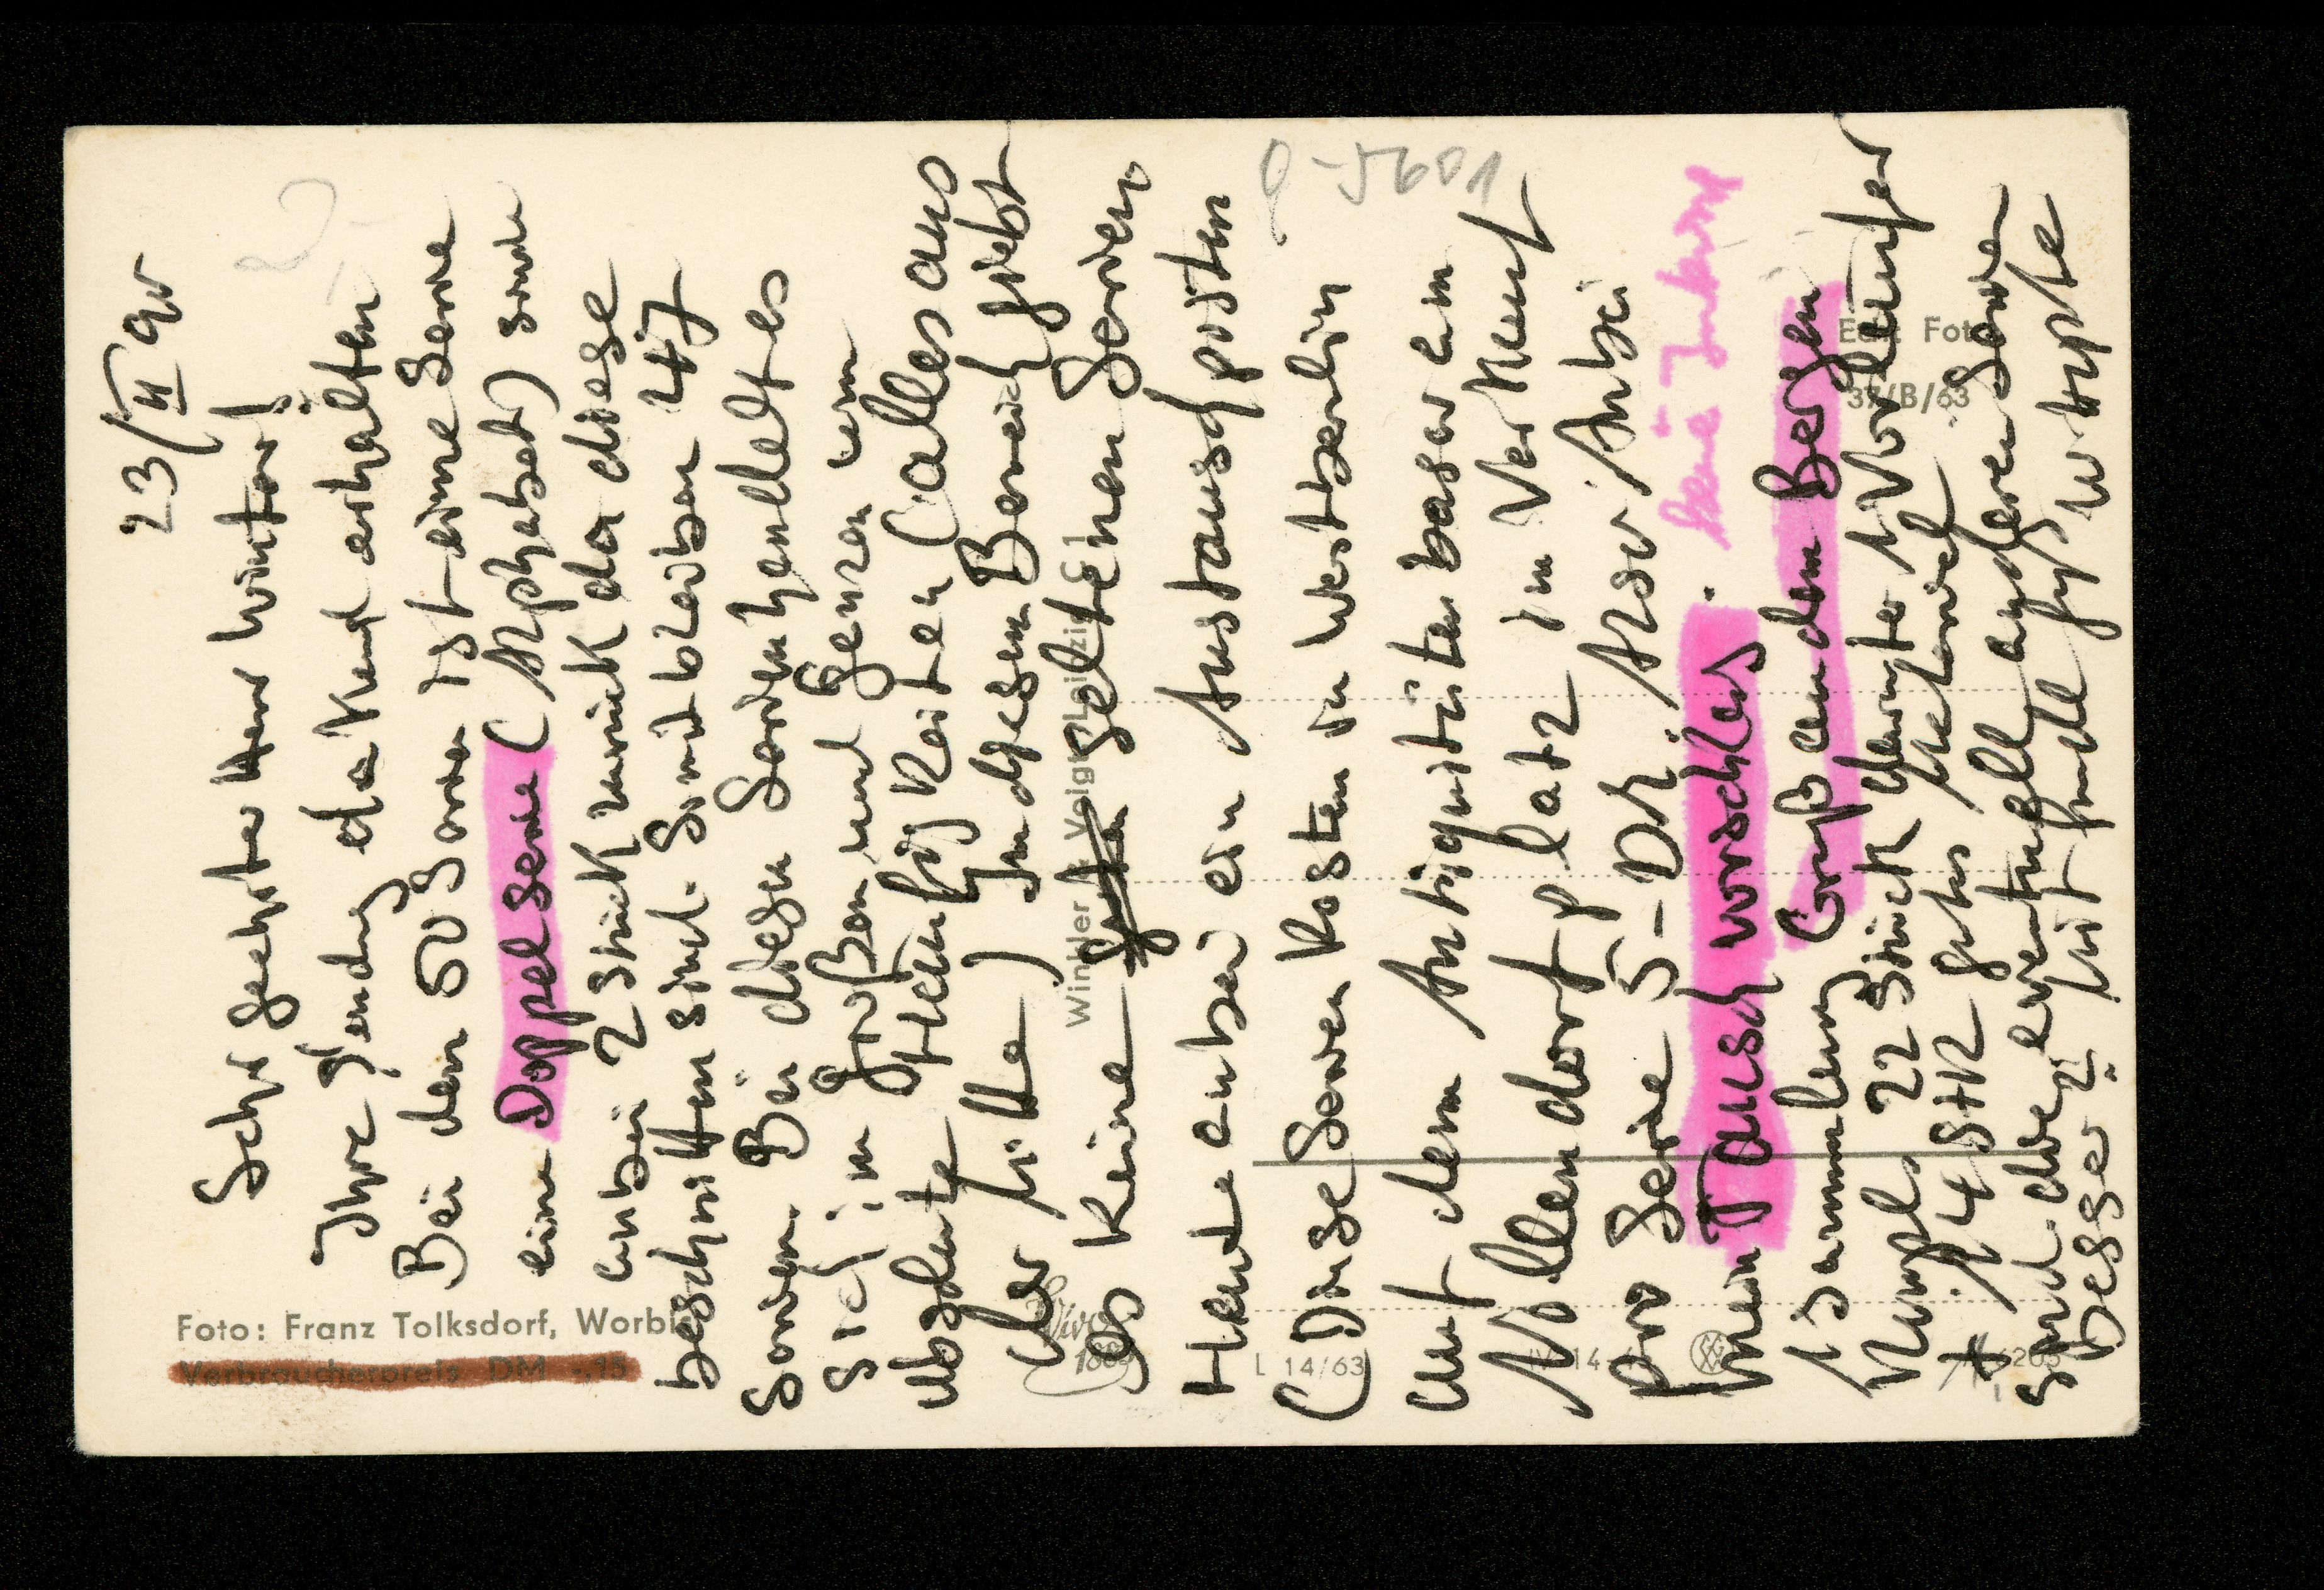 23/II 90
Sehr geehrter Herr Winter!
Ihre Sendung dankend erhalten
Bei den 50 Serien ist eine Serie
eine Doppelserie (Alphabet) sende
anbei 2 Stück zurück da diese
beschnitten sind. Somit bleiben 47
Serien. Bei diesen Serien handelt es
sich im großen und ganzen um
absolute Häufigkeiten (alles aus
der Mitte) In diesem Bereich giebt
es keine seltenen Serien
Heute anbei ein Austauschposten
(Diese Serien kosten in Westberlin
auf dem Antiquitätenbasar am
Nollendorfplatz im Verkauf
pro Serie 5-DM. Also! Anbei
mein Tausch vorschlag. kein Interesse
Gruß an den Bergen
1 Sammlung
22 Stück darunter 1 Vorläufer
+ 14 Stk gutes Material
sind das eventuell andere Serien
Besser
Foto: Franz Tolksdorf, Worbis
Verbraucherpreis DM -.15
Winkler & Voigt, Leipzig C 1
Echt Foto
37/B/63
L 14/63
0-5601